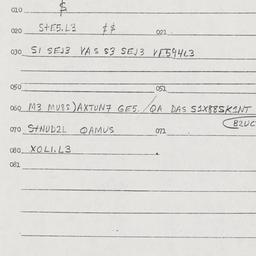 010 $
020 STE5.L3 $$ 021
030 SI SEJ3 VAS S3 SEJ3 VF594L3
051
060 M3 MU8S)AXTUN7 GE5. / OA DAS S1X88SK1NT
(82UC
070 S+NUD2L OAMUS 071
080 XOLI.L3
081